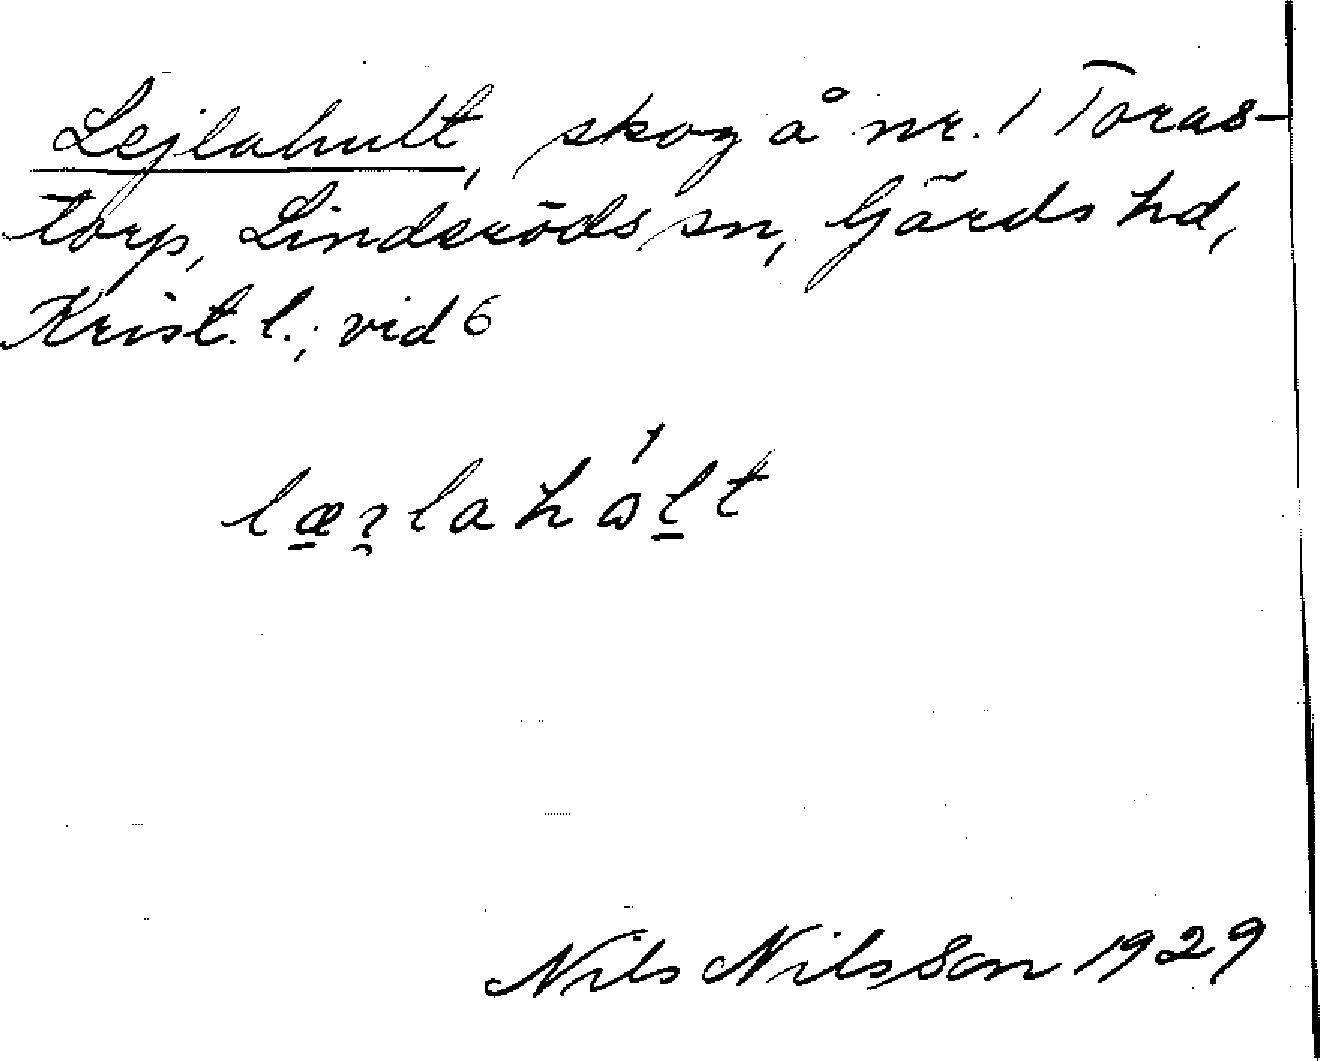 Lejlahult, skog å nr. 1 Toras-
torp, Linderöds sn, Gärds hd,
Krist. l.; vid 6
Nils Nilsson 1929